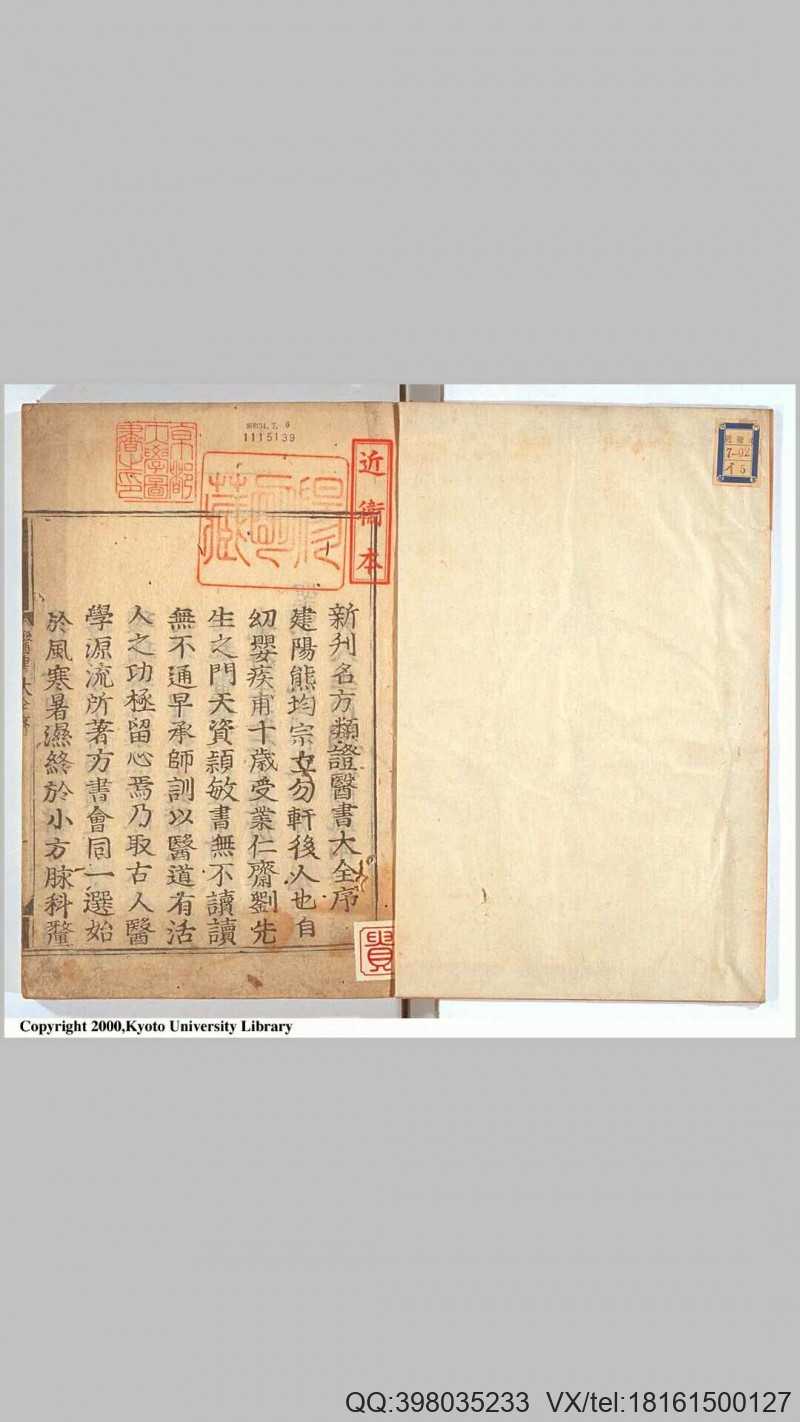 新刊名方類證醫書大全序
建陽熊均宗立勿軒後人也自
幼嬰疾甫十歲受業仁齋劉先
生之門天資頴敏書無不讀讀
無不通早承師訓以醫道有活
人之功極留心焉乃取古人醫
學源流所著方書會同一選始
於風寒暑濕終於小方脉科釐
近衛本
京都
大學圖
書之印
1115139
貴
7-02
イ 5
Copyright 2000,Kyoto University Library
QQ:398035233 VX/tel:18161500127